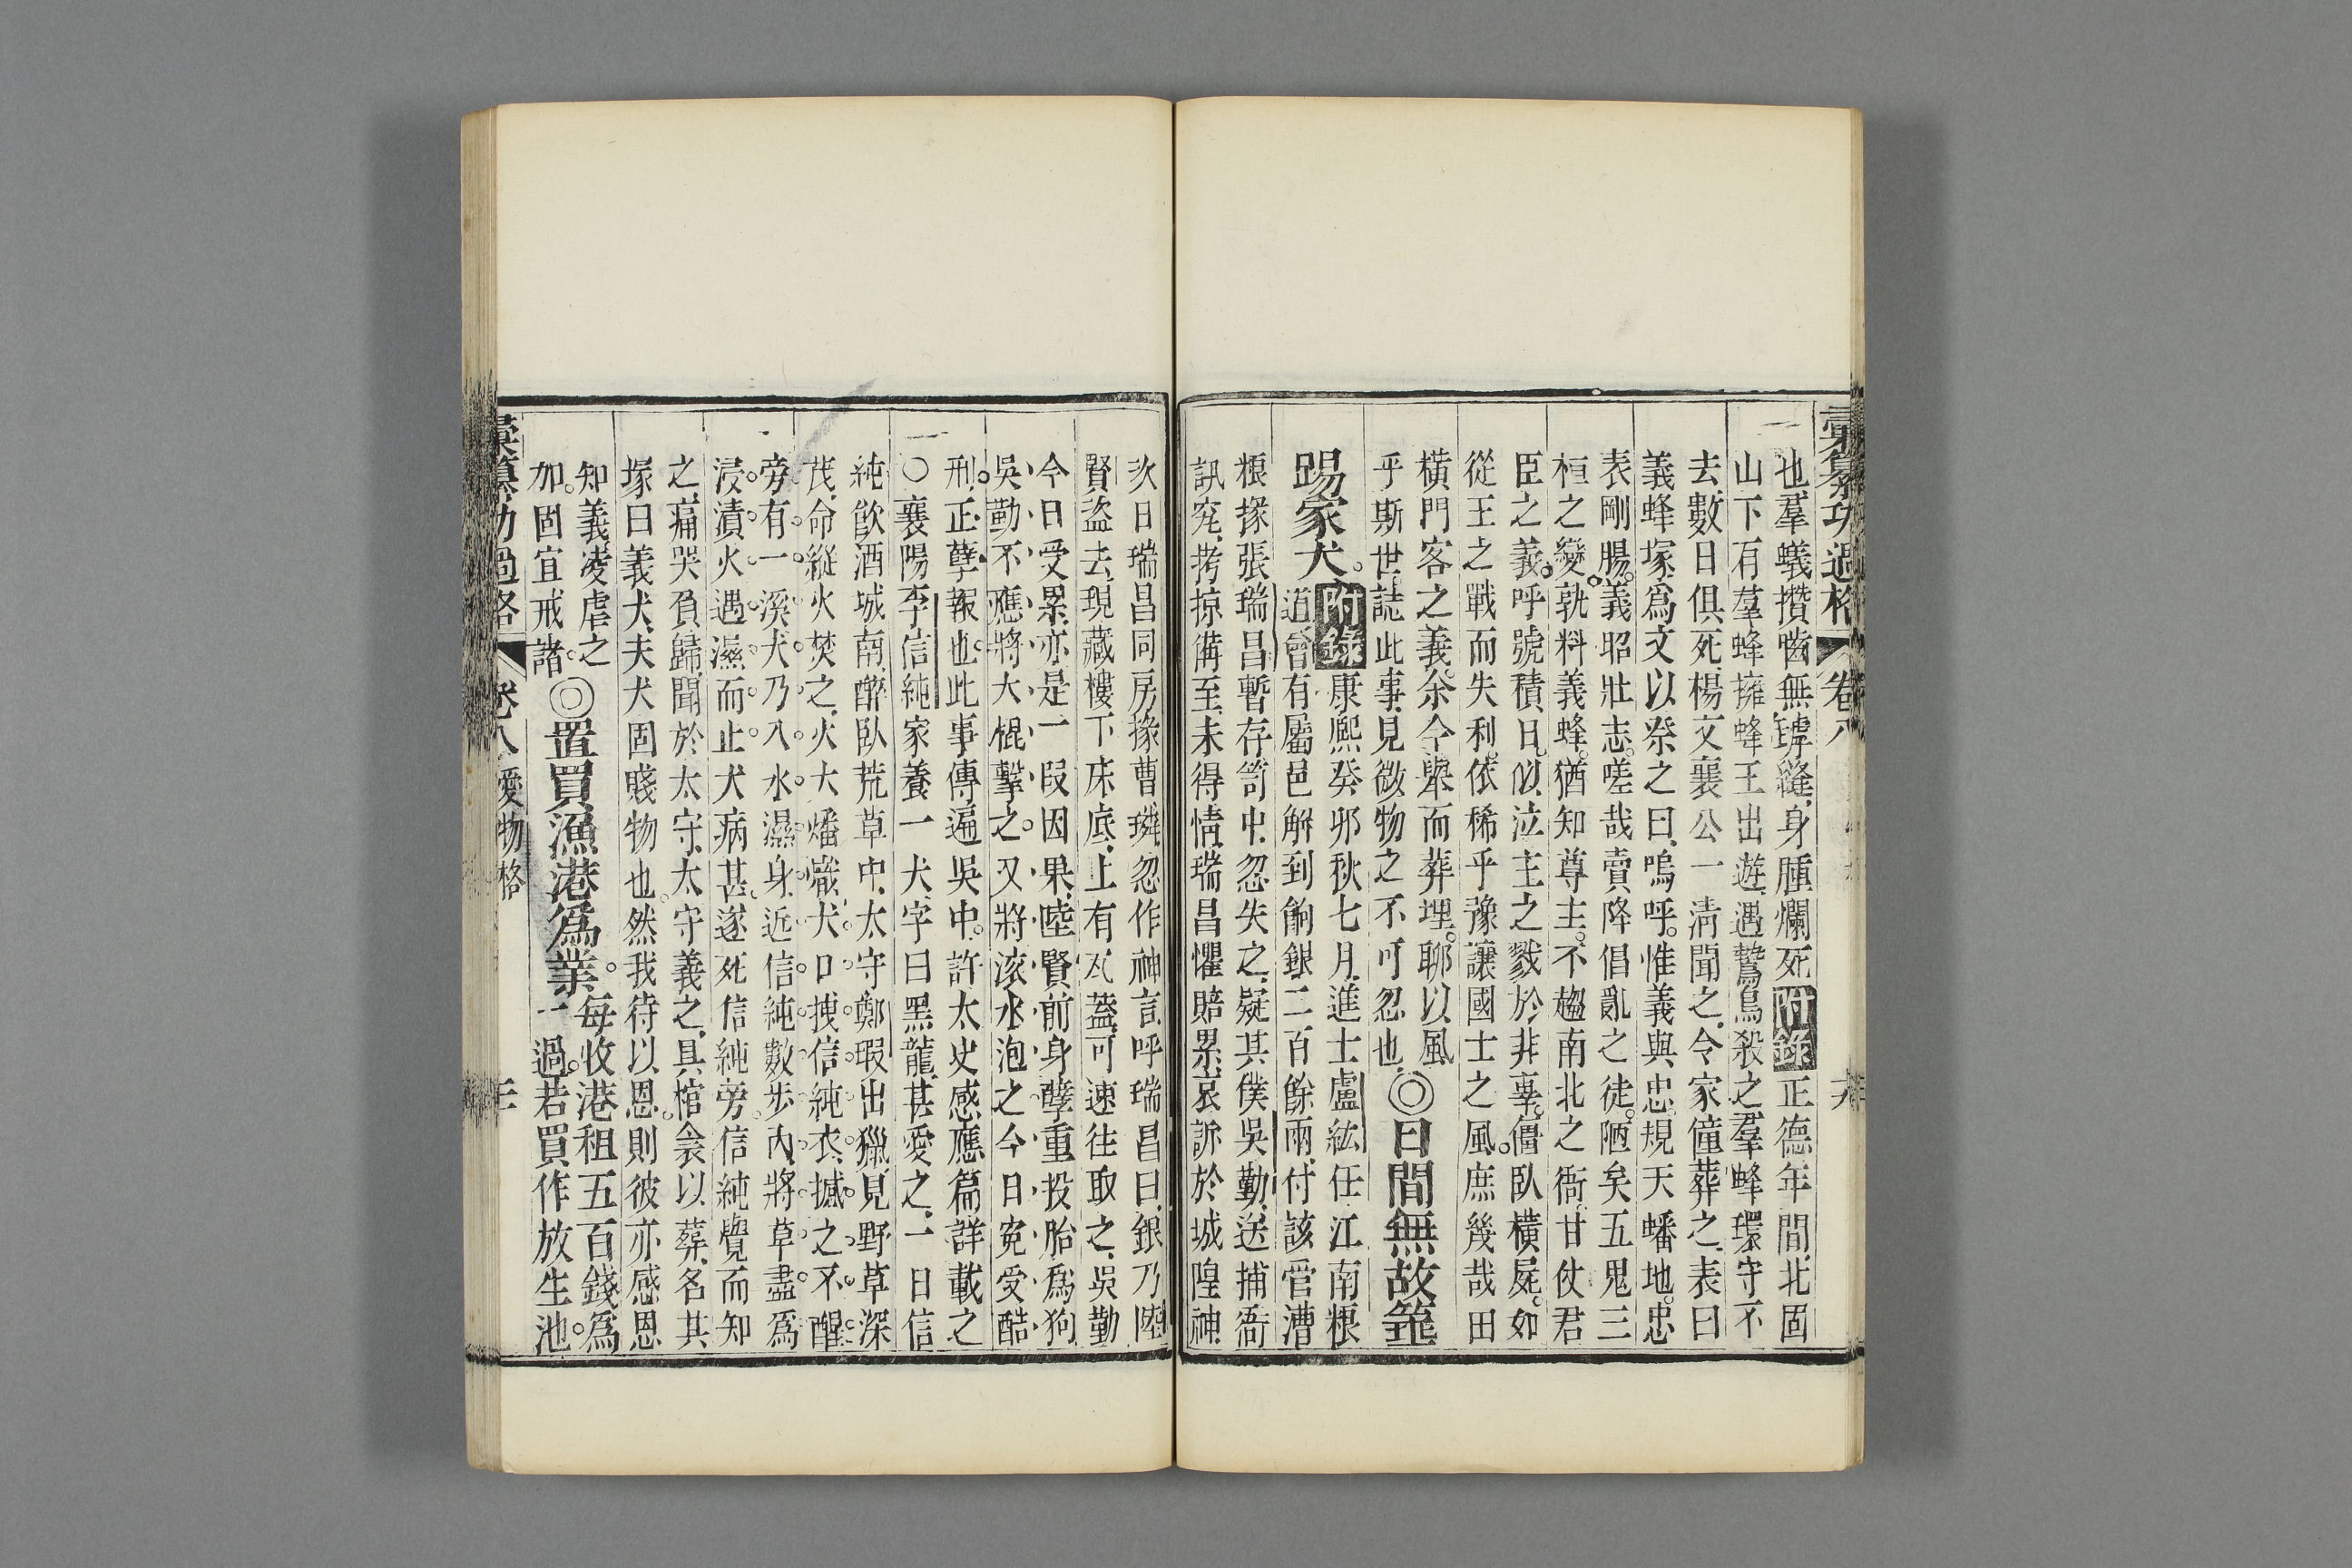 彙纂功過格 卷八
也羣蟻攢嚙無罅縫身腫爛死附錄正德年間北固
山下有羣蜂擁蜂王出遊遇鷙鳥殺之羣蜂環守不
去數日俱死楊文襄公一淸聞之令家僮葬之表曰
義蜂塚爲文以祭之曰嗚呼惟義與忠規天蟠地忠
表剛腸義昭壯志嗟哉賣降倡亂之徒陋矣五鬼三
桓之變孰料義蜂猶知尊主不趨南北之衙甘仗君
臣之義呼號積日似泣主之戮於非辜僵臥橫屍如
從王之戰而失利依稀乎豫讓國士之風庶幾哉田
橫門客之義余令舉而葬埋聊以風
乎斯世誌此事見微物之不可忍也◎日間無故箠
踢家犬附錄康熙癸卯秋七月進士盧紘任江南糧
道曾有屬邑解到餉銀二百餘兩付該管漕
糧掾張瑞昌暫存笥中忽失之疑其僕吳勤送捕衙
訊究拷掠備至未得情瑞昌懼賠累哀訴於城隍神
次日瑞昌同房掾曹璘忽作神言呼瑞昌曰銀乃陸
賢盜去現藏樓下床底上有瓦蓋可速往取之吳勤
今日受累亦是一段因果陸賢前身孽重投胎爲狗
吳勤不應將大棍擊之又將滾水泡之今日寃受酷
刑正孽報也此事傳遍吳中許太史感應篇詳載之
○襄陽李信純家養一犬字曰黑龍甚愛之一日信
純飮酒城南醉臥荒草中太守鄭瑕出獵見野草深
茂命縱火焚之火大燔熾犬口拽信純衣撼之不醒
旁有一溪犬乃入水濕身近信純數步內將草盡爲
浸漬火遇濕而止犬病甚遂死信純旁信純覺而知
之痛哭負歸聞於太守太守義之具棺衾以葬名其
塚曰義犬夫犬固賤物也然我待以恩則彼亦感恩
知義凌虐之
加固宜戒諸◎置買漁港爲業每收港租五百錢爲
一過若買作放生池
彙纂功過格 卷八 愛物格